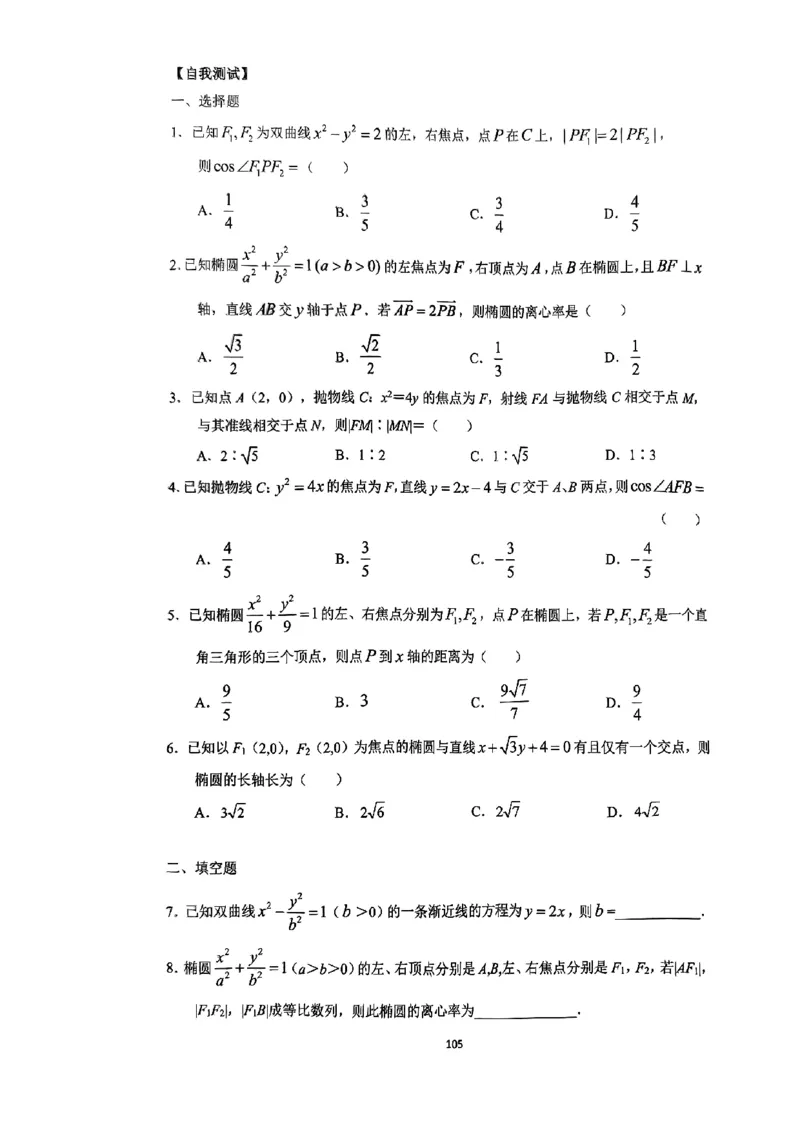 【自我测试】
一、选择题
1. 已知F₁,F₂为双曲线x²－y²=2的左，右焦点，点P在C上，|PF₁|=2|PF₂|，
则cos∠F₁PF₂=（ ）
A. 1/4 B. 3/5 C. 3/4 D. 4/5
2.已知椭圆x²/a²+y²/b²=1(a>b>0)的左焦点为F,右顶点为A,点B在椭圆上,且BF⊥x
轴，直线AB交y轴于点P．若AP=2PB，则椭圆的离心率是（ ）
A. √3/2 B. √2/2 C. 1/3 D. 1/2
3．已知点A（2，0），抛物线C：x²=4y的焦点为F，射线FA与抛物线C相交于点M，
与其准线相交于点N，则|FM|：|MN|=（ ）
A. 2：√5 B. 1：2 C. 1：√5 D. 1：3
4.已知抛物线C：y²=4x的焦点为F,直线y=2x－4与C交于A、B两点,则cos∠AFB=
（ ）
A. 4/5 B. 3/5 C. －3/5 D. －4/5
5．已知椭圆x²/16+y²/9=1的左、右焦点分别为F₁,F₂，点P在椭圆上，若P,F₁,F₂是一个直
角三角形的三个顶点，则点P到x轴的距离为（ ）
A. 9/5 B. 3 C. 9√7/7 D. 9/4
6．已知以F₁（2,0），F₂（2,0）为焦点的椭圆与直线x+√3y+4=0有且仅有一个交点，则
椭圆的长轴长为（ ）
A. 3√2 B. 2√6 C. 2√7 D. 4√2
二、填空题
7．已知双曲线x²－y²/b²=1（b>0）的一条渐近线的方程为y=2x，则b=________.
8．椭圆x²/a²+y²/b²=1(a>b>0)的左、右顶点分别是A,B,左、右焦点分别是F₁，F₂，若|AF₁|，
|F₁F₂|，|F₁B|成等比数列，则此椭圆的离心率为________.
105